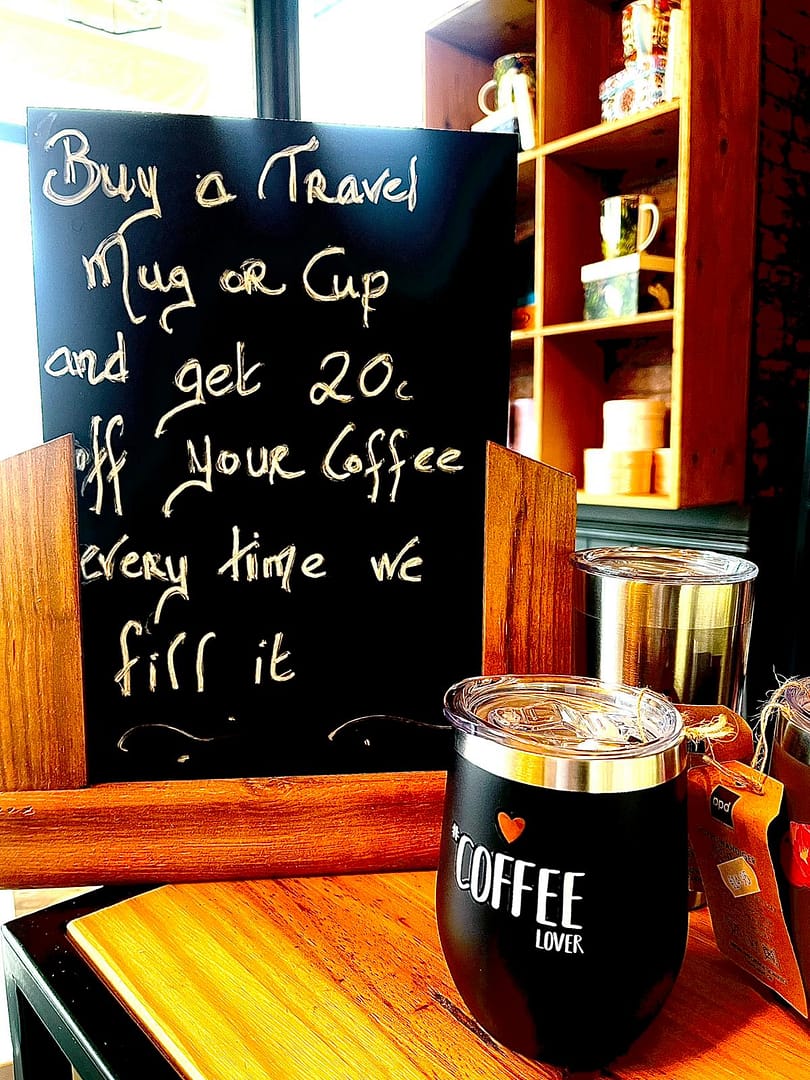 Buy a Travel
Mug OR Cup
and get 20c
off your Coffee
every time we
fill it
#COFFEE
LOVER
apd